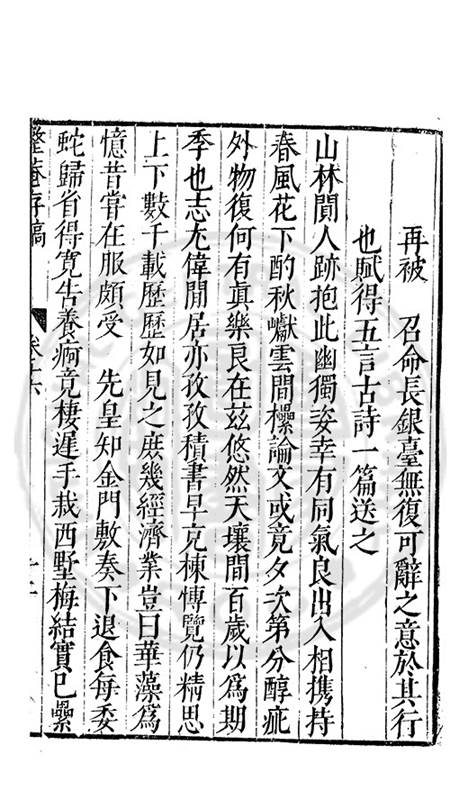 再被　召命長銀臺無復可辭之意於其行
也賦得五言古詩一篇送之
山林閴人跡抱此幽獨姿幸有同氣良出入相携持
春風花下酌秋巘雲間欙論文或竟夕次第分醇疵
外物復何有眞樂良在兹悠然天壤間百歲以爲期
季也志尤偉閒居亦孜孜積書早克棟博覽仍精思
上下數千載歷歷如見之庶幾經濟業豈曰華藻爲
憶昔嘗在服頗受　先皇知金門敷奏下退食每委
蛇歸省得寛告養痾竟棲遲手栽西墅梅結實已纍
整菴存稿　卷十六